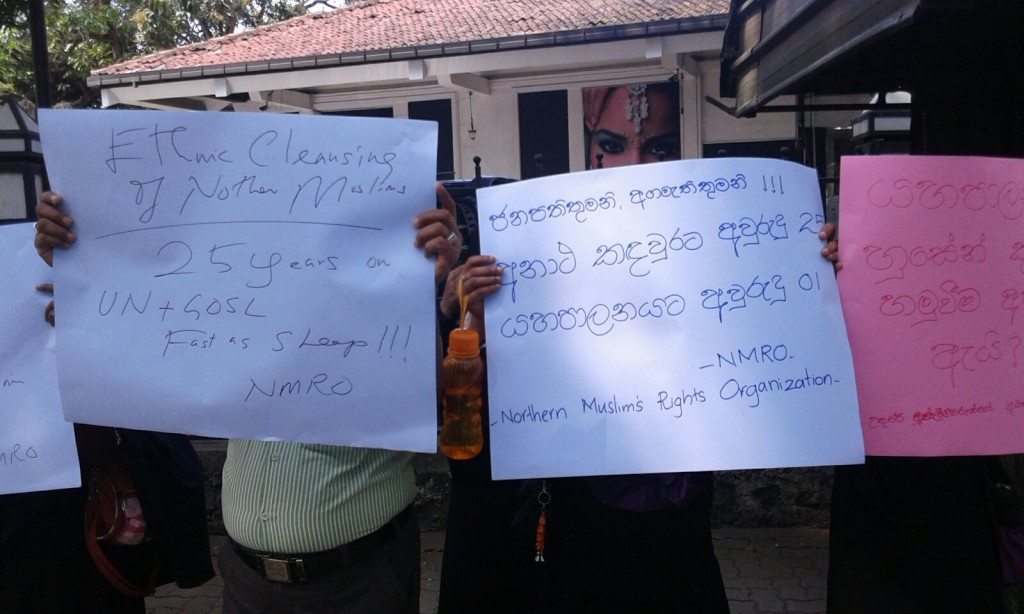 EThnic Cleansing
Of Nothern Muslims
25 years on
UN + GOSL
Fast as Sleep !!!
NMRO
MRO
ජනපතිතුමනි, අගමැතිතුමනි !!!
අනාථ කඳවුරට අවුරුදු 25
යහපාලනයට අවුරුදු 01
- NMRO.
- Northern Muslim's Rights Organization -
යහපාල
හුසේන්
හමුවීම
ඇයි?